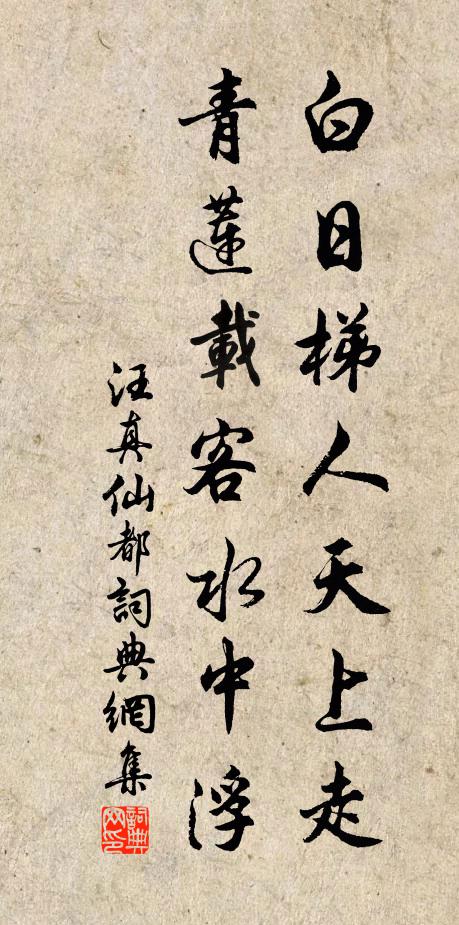 白日梯人天上走
青蓮載客水中浮
汪真仙都詞典網集
詞典網印